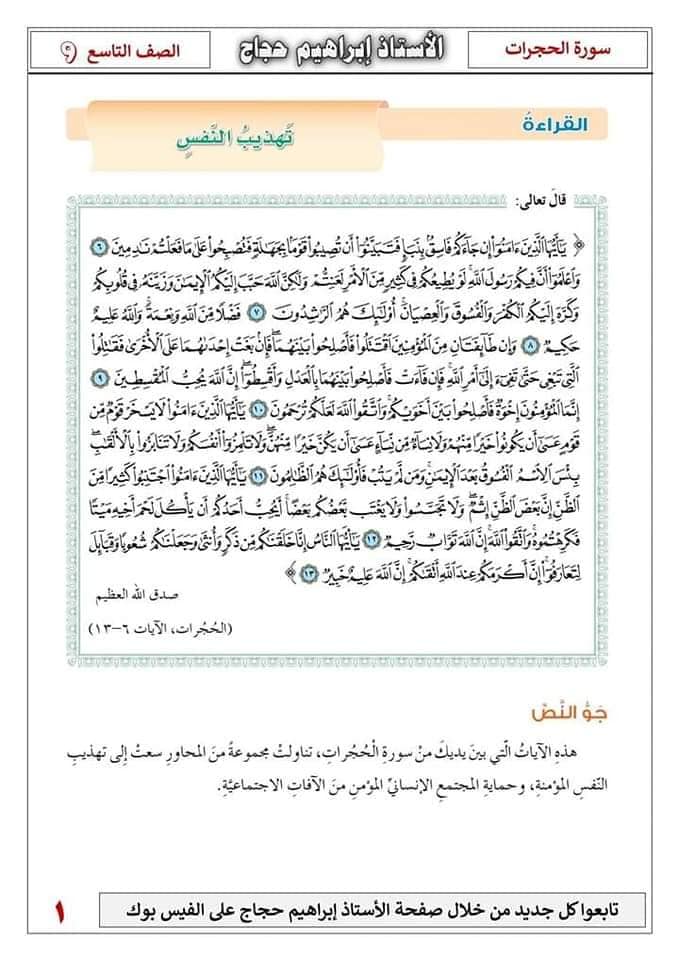 سورة الحجرات
الأستاذ إبراهيم حجاج
الصف التاسع ٩
القراءةُ
تَهذيبُ النَّفسِ
قالَ تعالى:
﴿ يَٰٓأَيُّهَا ٱلَّذِينَ ءَامَنُوٓاْ إِن جَآءَكُمۡ فَاسِقُۢ بِنَبَإٖ فَتَبَيَّنُوٓاْ أَن تُصِيبُواْ قَوۡمَۢا بِجَهَٰلَةٖ فَتُصۡبِحُواْ عَلَىٰ مَا فَعَلۡتُمۡ نَٰدِمِينَ ٦
وَٱعۡلَمُوٓاْ أَنَّ فِيكُمۡ رَسُولَ ٱللَّهِۚ لَوۡ يُطِيعُكُمۡ فِي كَثِيرٖ مِّنَ ٱلۡأَمۡرِ لَعَنِتُّمۡ وَلَٰكِنَّ ٱللَّهَ حَبَّبَ إِلَيۡكُمُ ٱلۡإِيمَٰنَ وَزَيَّنَهُۥ فِي قُلُوبِكُمۡ
وَكَرَّهَ إِلَيۡكُمُ ٱلۡكُفۡرَ وَٱلۡفُسُوقَ وَٱلۡعِصۡيَانَۚ أُوْلَٰٓئِكَ هُمُ ٱلرَّٰشِدُونَ ٧ فَضۡلٗا مِّنَ ٱللَّهِ وَنِعۡمَةٗۚ وَٱللَّهُ عَلِيمٌ
حَكِيمٞ ٨ وَإِن طَآئِفَتَانِ مِنَ ٱلۡمُؤۡمِنِينَ ٱقۡتَتَلُواْ فَأَصۡلِحُواْ بَيۡنَهُمَاۖ فَإِنۢ بَغَتۡ إِحۡدَىٰهُمَا عَلَى ٱلۡأُخۡرَىٰ فَقَٰتِلُواْ
ٱلَّتِي تَبۡغِي حَتَّىٰ تَفِيٓءَ إِلَىٰٓ أَمۡرِ ٱللَّهِۚ فَإِن فَآءَتۡ فَأَصۡلِحُواْ بَيۡنَهُمَا بِٱلۡعَدۡلِ وَأَقۡسِطُوٓاْۖ إِنَّ ٱللَّهَ يُحِبُّ ٱلۡمُقۡسِطِينَ ٩
إِنَّمَا ٱلۡمُؤۡمِنُونَ إِخۡوَةٞ فَأَصۡلِحُواْ بَيۡنَ أَخَوَيۡكُمۡۚ وَٱتَّقُواْ ٱللَّهَ لَعَلَّكُمۡ تُرۡحَمُونَ ١٠ يَٰٓأَيُّهَا ٱلَّذِينَ ءَامَنُواْ لَا يَسۡخَرۡ قَوۡمٞ مِّن
قَوۡمٍ عَسَىٰٓ أَن يَكُونُواْ خَيۡرٗا مِّنۡهُمۡ وَلَا نِسَآءٞ مِّن نِّسَآءٍ عَسَىٰٓ أَن يَكُنَّ خَيۡرٗا مِّنۡهُنَّۖ وَلَا تَلۡمِزُوٓاْ أَنفُسَكُمۡ وَلَا تَنَابَزُواْ بِٱلۡأَلۡقَٰبِۖ
بِئۡسَ ٱلِٱسۡمُ ٱلۡفُسُوقُ بَعۡدَ ٱلۡإِيمَٰنِۚ وَمَن لَّمۡ يَتُبۡ فَأُوْلَٰٓئِكَ هُمُ ٱلظَّٰلِمُونَ ١١ يَٰٓأَيُّهَا ٱلَّذِينَ ءَامَنُواْ ٱجۡتَنِبُواْ كَثِيرٗا مِّنَ
ٱلظَّنِّ إِنَّ بَعۡضَ ٱلظَّنِّ إِثۡمٞۖ وَلَا تَجَسَّسُواْ وَلَا يَغۡتَب بَّعۡضُكُم بَعۡضًاۚ أَيُحِبُّ أَحَدُكُمۡ أَن يَأۡكُلَ لَحۡمَ أَخِيهِ مَيۡتٗا
فَكَرِهۡتُمُوهُۚ وَٱتَّقُواْ ٱللَّهَۚ إِنَّ ٱللَّهَ تَوَّابٞ رَّحِيمٞ ١٢ يَٰٓأَيُّهَا ٱلنَّاسُ إِنَّا خَلَقۡنَٰكُم مِّن ذَكَرٖ وَأُنثَىٰ وَجَعَلۡنَٰكُمۡ شُعُوبٗا وَقَبَآئِلَ
لِتَعَارَفُوٓاْۚ إِنَّ أَكۡرَمَكُمۡ عِندَ ٱللَّهِ أَتۡقَىٰكُمۡۚ إِنَّ ٱللَّهَ عَلِيمٌ خَبِيرٞ ١٣ ﴾
صدق الله العظيم
(الحُجُرات، الآيات ٦-١٣)
جَوُّ النَّصِّ
هذهِ الآياتُ الّتي بينَ يديكَ منْ سورةِ الْحُجُراتِ، تناولتْ مجموعةً منَ المحاورِ سعتْ إلى تهذيبِ
النّفسِ المؤمنةِ، وحمايةِ المجتمعِ الإنسانيِّ المؤمنِ منَ الآفاتِ الاجتماعيّةِ.
تابعوا كل جديد من خلال صفحة الأستاذ إبراهيم حجاج على الفيس بوك
١